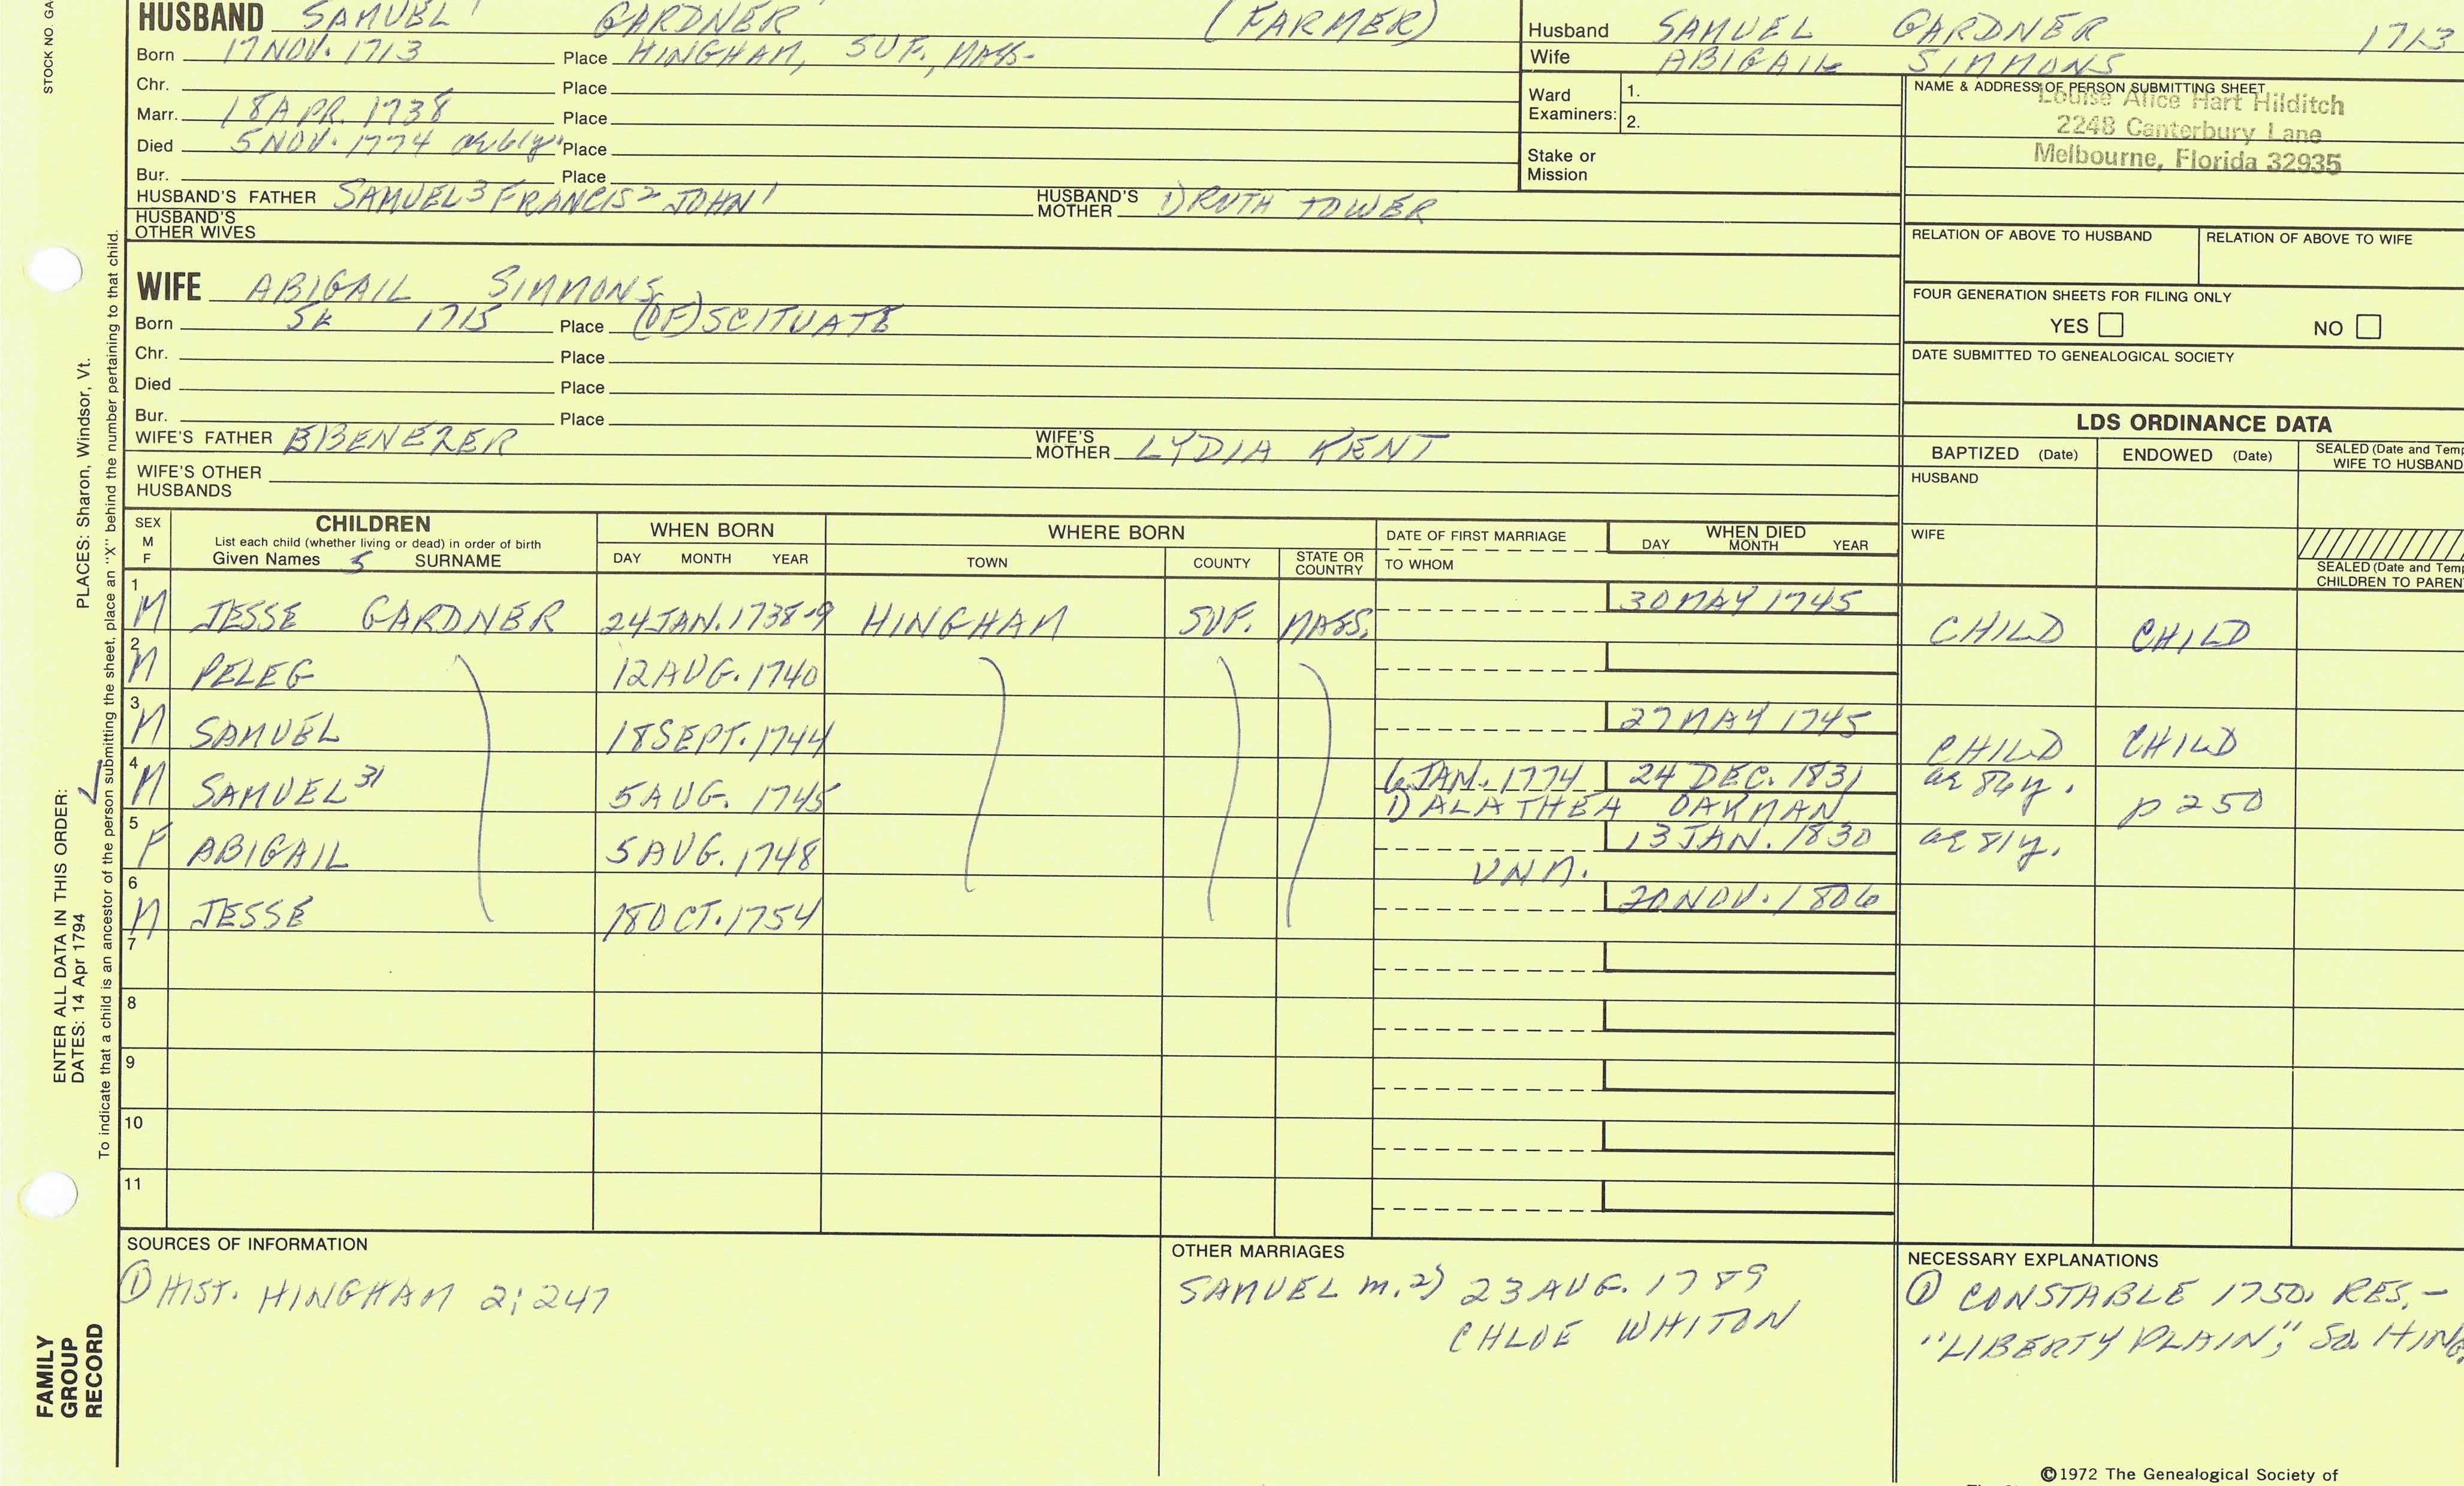 STOCK NO. GA
HUSBAND SAMUEL GARDNER (FARMER)
Born 17 NOV. 1713 Place HINGHAM, SUF., MASS.
Chr. Place
Marr. 18 APR. 1738 Place
Died 5 NOV. 1774 ae 61y. Place
Bur. Place
HUSBAND'S FATHER SAMUEL3 FRANCIS2 JOHN1 HUSBAND'S MOTHER 1) RUTH TOWER
HUSBAND'S OTHER WIVES
WIFE ABIGAIL SIMMONS
Born 1715 Place (OF) SCITUATE
Chr. Place
Died Place
Bur. Place
WIFE'S FATHER EBENEZER WIFE'S MOTHER LYDIA KENT
WIFE'S OTHER HUSBANDS
Husband SAMUEL GARDNER 1713
Wife ABIGAIL SIMMONS
Ward Examiners: 1.
2.
Stake or Mission
NAME & ADDRESS OF PERSON SUBMITTING SHEET
Louise Alice Hart Hilditch
2248 Canterbury Lane
Melbourne, Florida 32935
RELATION OF ABOVE TO HUSBAND RELATION OF ABOVE TO WIFE
FOUR GENERATION SHEETS FOR FILING ONLY
YES NO
DATE SUBMITTED TO GENEALOGICAL SOCIETY
LDS ORDINANCE DATA
BAPTIZED (Date) ENDOWED (Date) SEALED (Date and Temp
WIFE TO HUSBAND
HUSBAND
WIFE
SEALED (Date and Temp
CHILDREN TO PAREN
SEX M F CHILDREN WHEN BORN WHERE BORN DATE OF FIRST MARRIAGE WHEN DIED
List each child (whether living or dead) in order of birth
Given Names 5 SURNAME DAY MONTH YEAR TOWN COUNTY STATE OR COUNTRY TO WHOM DAY MONTH YEAR
1 M JESSE GARDNER 24 JAN. 1738-9 HINGHAM SUF. MASS. 30 MAY 1745 CHILD CHILD
2 M PELEG 12 AUG. 1740
3 M SAMUEL 18 SEPT. 1744 27 MAY 1745 CHILD CHILD
4 M SAMUEL31 5 AUG. 1745 6 JAN. 1774 24 DEC. 1831 ae 86y. p 250
1) ALATHEA OAKMAN
5 F ABIGAIL 5 AUG. 1748 UNM. 13 JAN. 1830 ae 81y.
6 M JESSE 18 OCT. 1754 20 NOV. 1806
7
8
9
10
11
SOURCES OF INFORMATION
① HIST. HINGHAM 2:247
OTHER MARRIAGES
SAMUEL m. 2) 23 AUG. 1789
CHLOE WHITON
NECESSARY EXPLANATIONS
① CONSTABLE 1750. RES.-
"LIBERTY PLAIN", So. HING.
©1972 The Genealogical Society of
ENTER ALL DATA IN THIS ORDER:
DATES: 14 Apr 1794
PLACES: Sharon, Windsor, Vt.
To indicate that a child is an ancestor of the person submitting the sheet, place an "X" behind the number pertaining to that child.
FAMILY
GROUP
RECORD